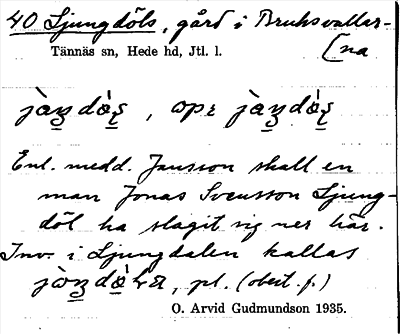 40 Ljungdöls, gård i Bruksvallar-
[na
Tännäs sn, Hede hd, Jtl. l.
, opr
Enl. medd. Jansson skall en
man Jonas Svensson Ljung-
döl ha slagit sig ner här.
Inv. i Ljungdalen kallas
, pl. (obest. f.)
O. Arvid Gudmundson 1935.